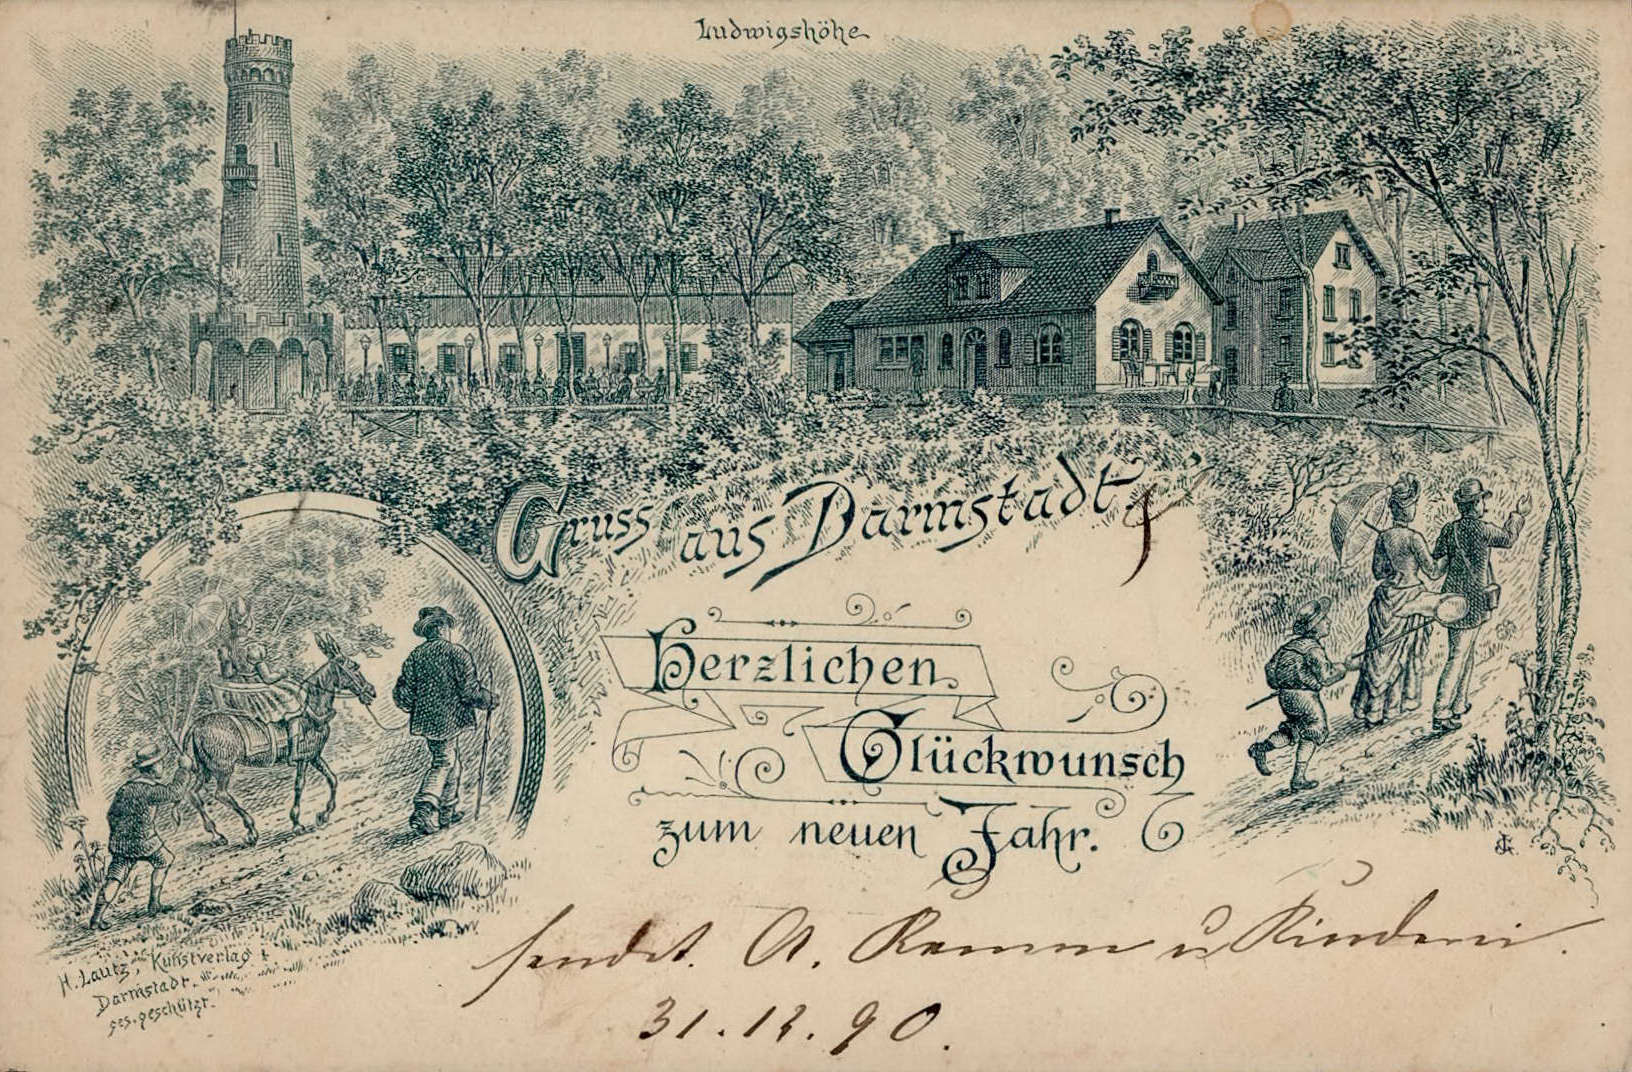 Ludwigshöhe
Gruss aus Darmstadt
Herzlichen
Glückwunsch
zum neuen Jahr.
H. Lautz, Kunstverlag
Darmstadt.
ges. geschützt.
sendet. A. Ramm u Kinderei.
31.12.90.